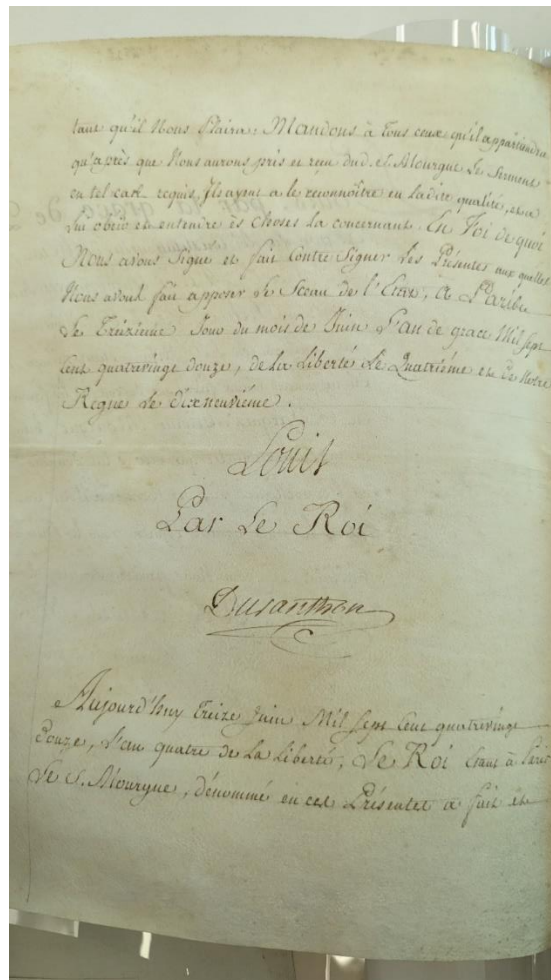 tant qu'il Nous Plaira; Mandons à Tous ceux qu'il appartiendra
qu'après que Nous aurons pris et reçu dud. S. Mourgue Le Serment
en tel cas requis, Ils ayent a le reconnoître en ladite qualité, et a
Lui obéir et entendre ès choses La concernant. En Foi de quoi
Nous avons Signé et fait Contre Signer Les Présentes aux quelles
Nous avons fait apposer Le Sceau de l'Etat, A Paris
Le Treizieme Jour du mois de Juin L'an de grace Mil Sept
Cent quatrevingt douze, de la Liberté Le Quatriéme et De Notre
Regne Le dixneuviéme.
Louis
Par Le Roi
Duranthon
Aujourd'huy Treize Juin Mil Sept Cent quatrevingt
Douze, L'an quatre de La Liberté, Le Roi Etant à Paris
Le S. Mourgue, dénommé en ces Présentes a fait et